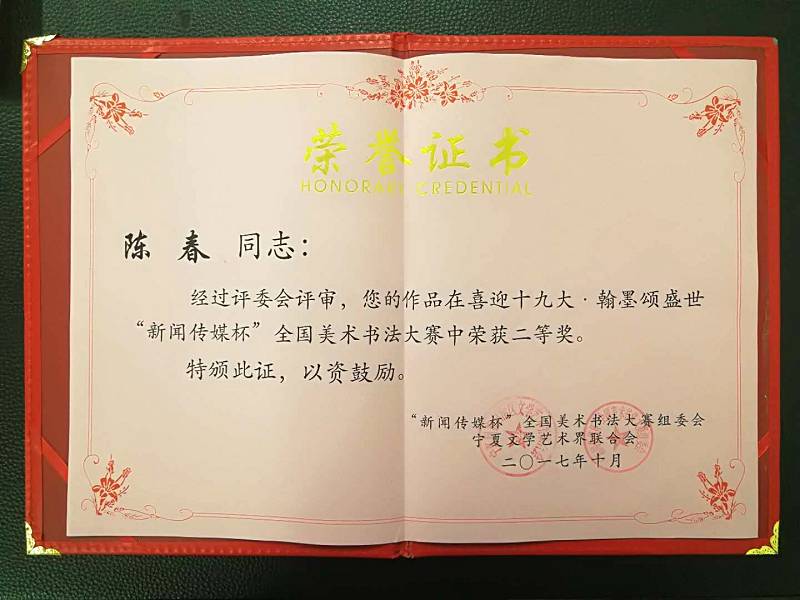 荣誉证书
HONORARY CREDENTIAL
陈 春 同志：
经过评委会评审，您的作品在喜迎十九大·翰墨颂盛世
“新闻传媒杯”全国美术书法大赛中荣获二等奖。
特颁此证，以资鼓励。
“新闻传媒杯”全国美术书法大赛组委会
宁夏文学艺术界联合会
二〇一七年十月